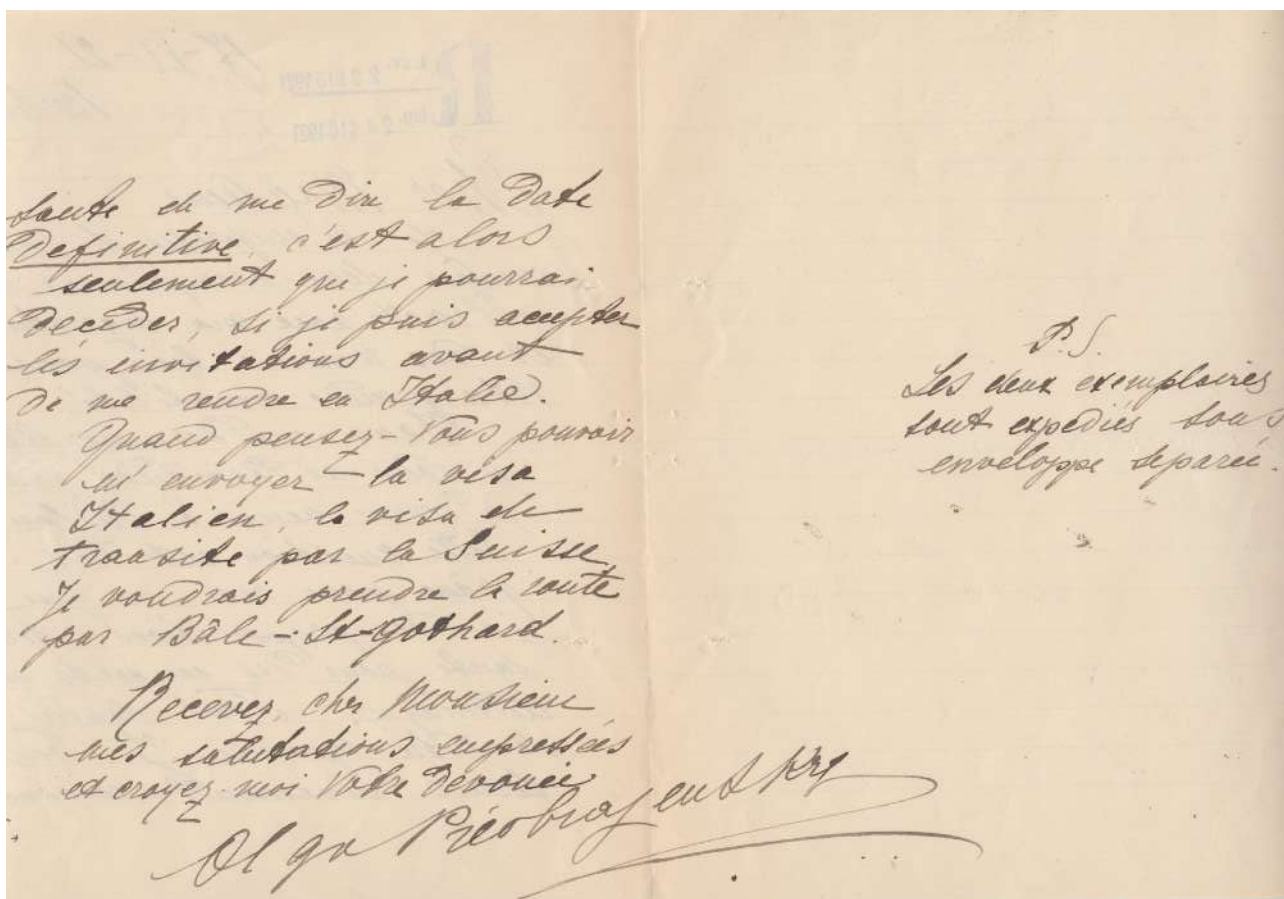 tante de me dire la Date
Definitive, c'est alors
seulement que je pourrai
Decider, si je puis accepter
les invitations avant
de me rendre en Italie.
Quand pensez-Vous pouvoir
m'envoyer la visa
Italien, le visa de
transite par la Suisse,
Je voudrais prendre la route
par Bâle-St-Gothard.
Recevez, cher Monsieur
mes salutations empressées
et croyez moi Votre Devouée
Olga Préobrajenskÿ
P.S.
Les deux exemplaires
sont expediés sous
enveloppe separée.